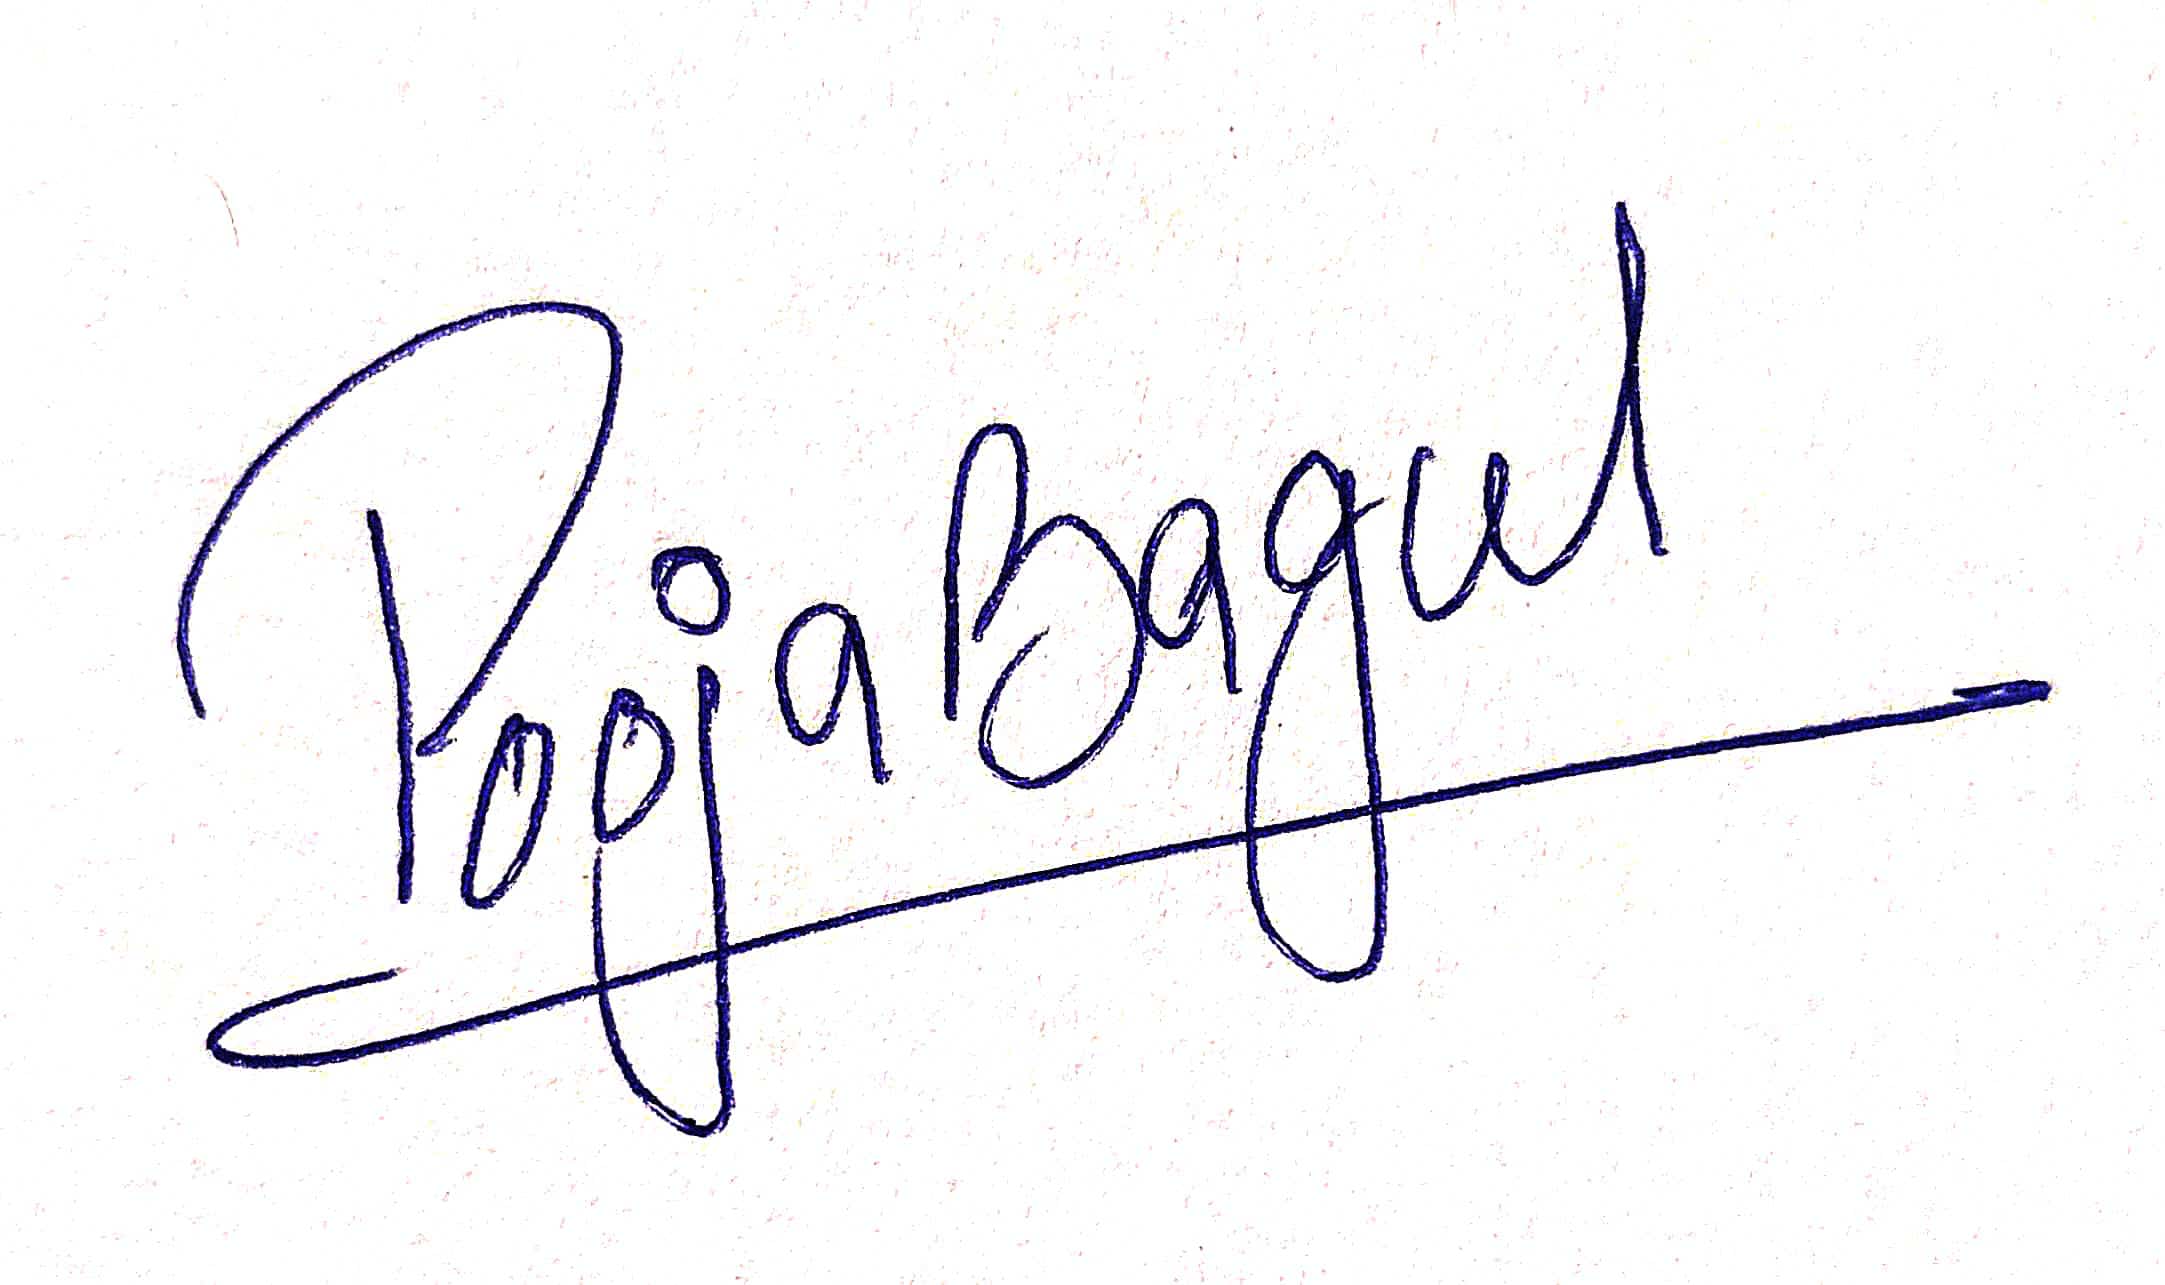 Pooja Bagul